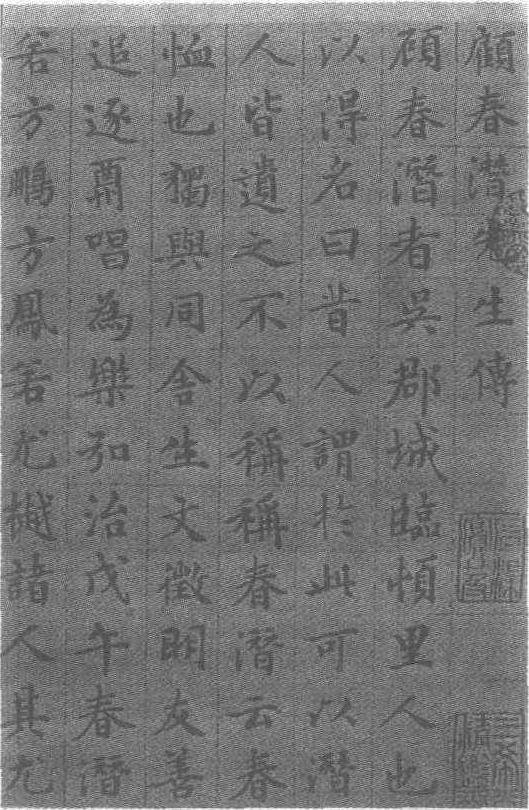 顧春潛先生傳
顧春潛者吳郡城臨頓里人也
以得名曰昔人謂於此可以潛
人皆遺之不以稱稱春潛云春
恤也獨與同舍生文徵明友善
追逐蕭唱為樂弘治戊午春潛
若方鵬方鳳若尤樾諸人其尤